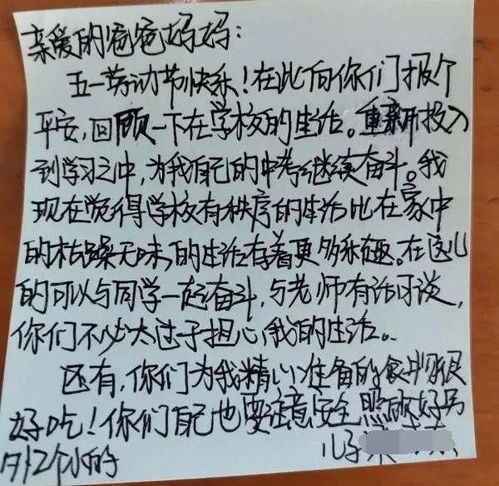 亲爱的爸爸妈妈：
五一劳动节快乐！在此向你们报个
平安，回顾一下在学校的生活。重新投入
到学习之中，为我自己的中考继续奋斗。我
现在觉得学校有秩序的生活比在家中
的枯躁无味的生活存着更多乐趣。在这儿
的可以与同学一起奋斗，与老师有话可谈，
你们不必太过于担心我的生活。
还有，你们为我精心准备的食物很
好吃！你们自己也要注意安全照顾好另
外2个小的
儿子